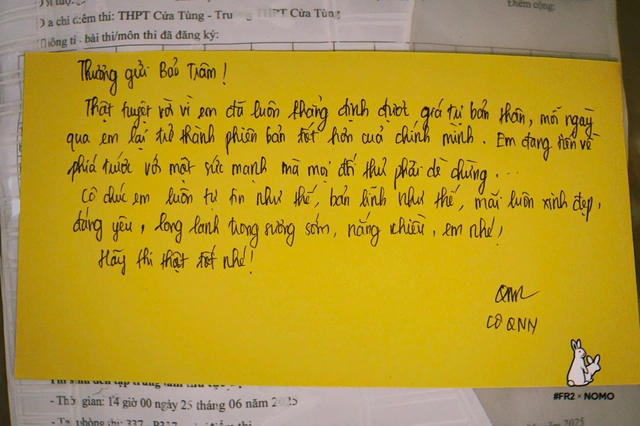 Địa chỉ điểm thi: THPT Cửa Tùng - Trường THPT Cửa Tùng
Điểm cộng:
Thông ti bài thi/môn thi đã đăng ký:
Thương gửi Bảo Trâm!
Thật tuyệt vời vì em đã luôn khẳng định được giá trị bản thân, mỗi ngày
qua em lại trở thành phiên bản tốt hơn của chính mình. Em đang tiến về
phía trước với một sức mạnh mà mọi đối thủ phải dè chừng...
Cô chúc em luôn tự tin như thế, bản lĩnh như thế, mãi luôn xinh đẹp,
đáng yêu, long lanh trong sương sớm, nắng chiều, em nhé!
Hãy thi thật tốt nhé!
CÔ QNN
#FR2 × NOMO
- Thời gian: 14 giờ 00 ngày 25 tháng 06 năm 2025
2025